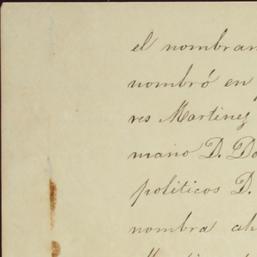 el nombram
nombró en
res Martinez
mano D. Do
politicos D.
nombra ah